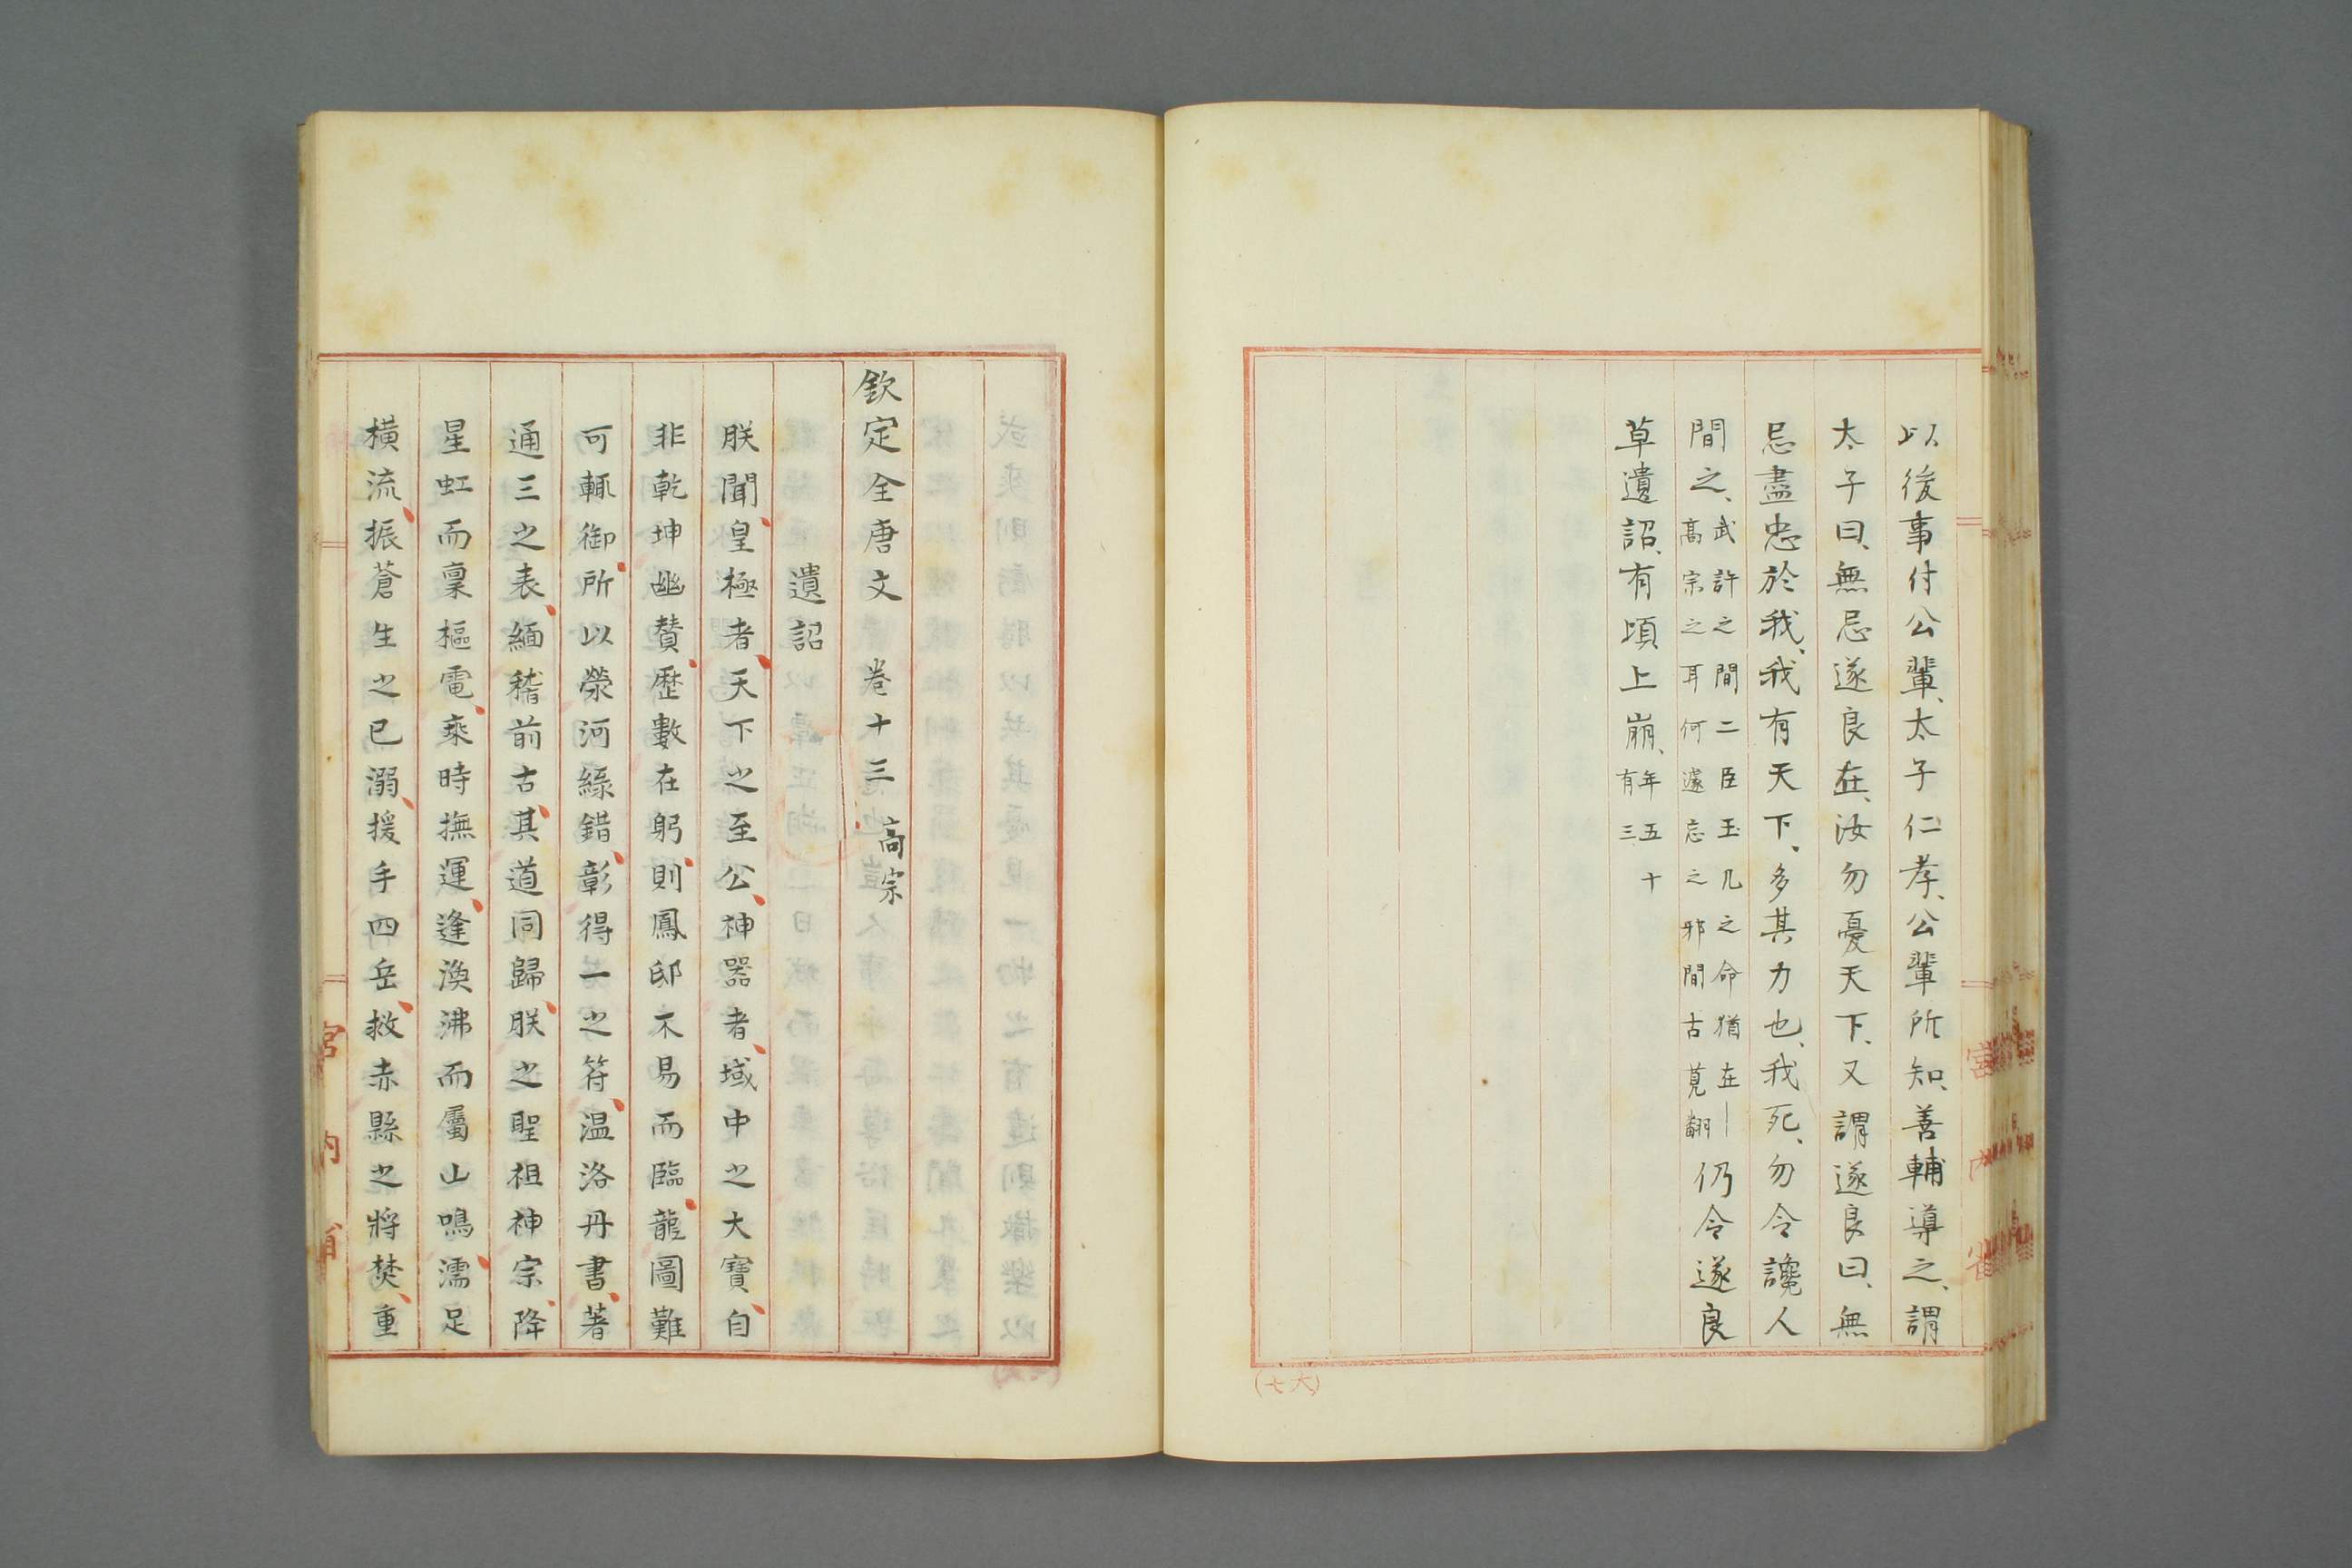 以後事付公輩、太子仁孝、公輩所知、善輔導之、謂
太子曰、無忌遂良在、汝勿憂天下、又謂遂良曰、無
忌盡忠於我、我有天下、多其力也、我死、勿令讒人
間之、武許之間二臣玉几之命猶在｜高宗之耳何遽忘之邪間古莧翻仍令遂良
草遺詔、有頃上崩、年五十有三、
(七大)
宮內省
欽定全唐文 卷十三 高宗
遺詔
朕聞、皇極者、天下之至公、神器者、域中之大寶、自
非乾坤幽贊、歷數在躬、則鳳邸不易而臨、龍圖難
可輒御、所以滎河綠錯、彰得一之符、温洛丹書、著
通三之表、緬稽前古、其道同歸、朕之聖祖神宗、降
星虹而稟樞電、乘時撫運、逢渙沸而屬山鳴、濡足
橫流、振蒼生之已溺、援手四岳、救赤縣之將焚、重
宮內省